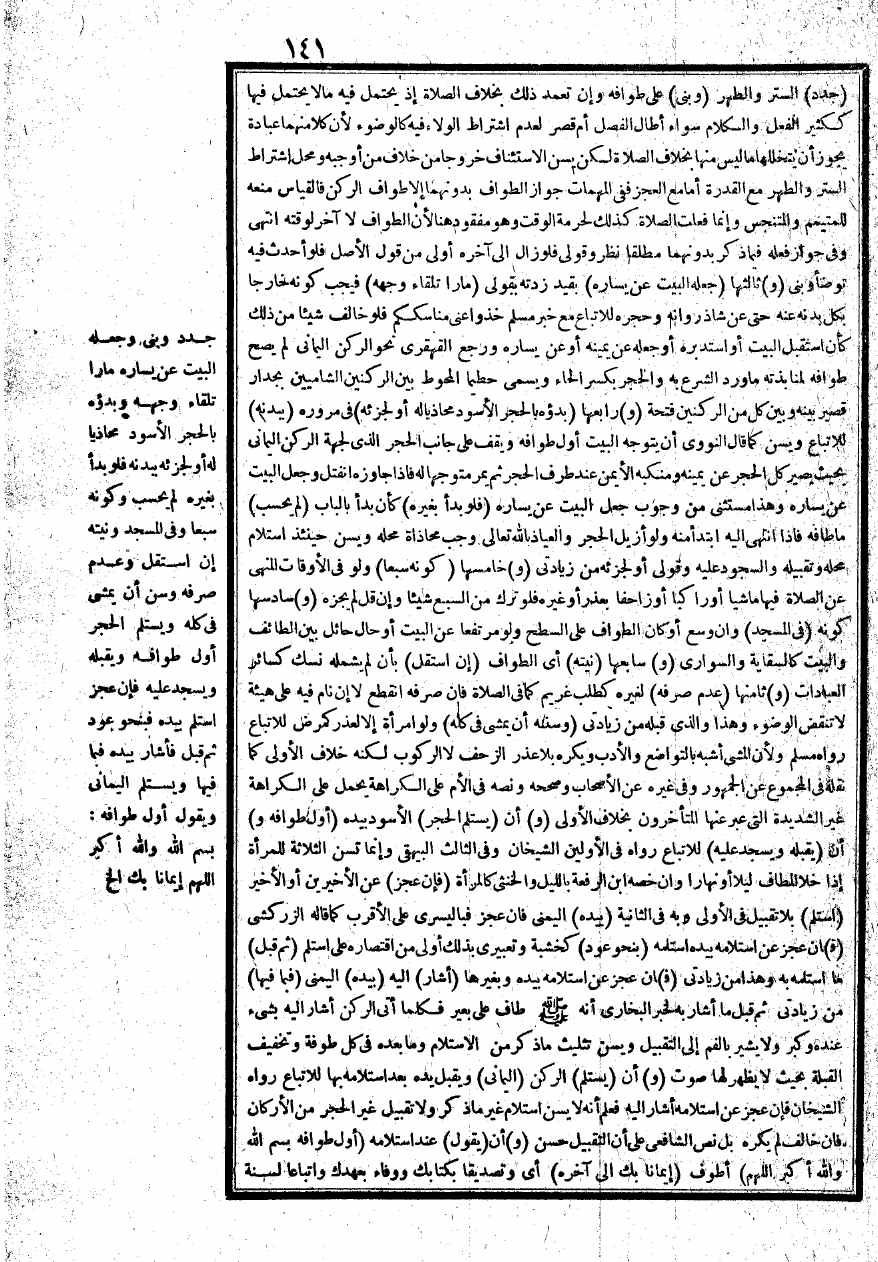 ١٤١
(جدد) الستر والطهر (وبنى) على طوافه وإن تعمد ذلك بخلاف الصلاة إذ يحتمل فيه مالا يحتمل فيها
ككثير الفعل والكلام سواء أطال الفصل أم قصر لعدم اشتراط الولاء فيه كالوضوء لأن كلا منهما عبادة
يجوز أن يتخللها ما ليس منها بخلاف الصلاة لكن يسن الاستئناف خروجا من خلاف من أوجبه ومحل اشتراط
الستر والطهر مع القدرة أما مع العجز ففي المهمات جواز الطواف بدونهما إلا طواف الركن فالقياس منعه
للمتيمم والمتنجس وإنما فعلت الصلاة كذلك لحرمة الوقت وهو مفقود هنا لأن الطواف لا آخر لوقته انتهى
وفى جواز فعله فيما ذكر بدونهما مطلقا نظر وقولى فلو زال الى آخره أولى من قول الأصل فلو أحدث فيه
توضأ وبنى (و) ثالثها (جعله البيت عن يساره) بقيد زدته بقولى (مارا تلقاء وجهه) فيجب كونه خارجا
بكل بدنه عنه حتى عن شاذروانه وحجره للاتباع مع خبر مسلم خذوا عنى مناسككم فلو خالف شيئا من ذلك
كأن استقبل البيت أو استدبره أو جعله عن يمينه أو عن يساره ورجع القهقرى نحو الركن اليمانى لم يصح
طوافه لمنابذته ما ورد الشرع به والحجر بكسر الحاء ويسمى حطيما المحوط بين الركنين الشاميين بجدار
قصير بينه وبين كل من الركنين فتحة (و) رابعها (بدؤه بالحجر الأسود محاذيا له أو لجزئه) فى مروره (ببدنه)
للاتباع ويسن كما قال النووى أن يتوجه البيت أول طوافه ويقف على جانب الحجر الذى لجهة الركن اليمانى
بحيث يصير كل الحجر عن يمينه ومنكبه الأيمن عند طرف الحجر ثم يمر متوجها له فاذا جاوزه انفتل وجعل البيت
عن يساره وهذا مستثنى من وجوب جعل البيت عن يساره (فلو بدأ بغيره) كأن بدأ بالباب (لم يحسب)
ما طافه فاذا انتهى اليه ابتدأ منه ولو أزيل الحجر والعياذ بالله تعالى وجب محاذاة محله ويسن حينئذ استلام
محله وتقبيله والسجود عليه وقولى أو لجزئه من زيادتى (و) خامسها ( كونه سبعا) ولو فى الأوقات المنهى
عن الصلاة فيها ماشيا أو راكبا أو زاحفا بعذر أو غيره فلو ترك من السبع شيئا وإن قل لم يجزه (و) سادسها
كونه (فى المسجد) وان وسع أو كان الطواف على السطح ولو مرتفعا عن البيت أو حال حائل بين الطائف
والبيت كالسقاية والسوارى (و) سابعها (نيته) أى الطواف (إن استقل) بأن لم يشمله نسك كسائر
العبادات (و) ثامنها (عدم صرفه) لغيره كطلب غريم كما فى الصلاة فان صرفه انقطع لا إن نام فيه على هيئة
لا تنقض الوضوء وهذا والذي قبله من زيادتى (وسننه أن يمشى فى كله) ولو امرأة إلا لعذر كمرض للاتباع
رواه مسلم ولأن المشى أشبه بالتواضع والأدب ويكره بلا عذر الزحف لا الركوب لكنه خلاف الأولى كما
نقله فى المجموع عن الجمهور وفى غيره عن الأصحاب وصححه ونصه فى الأم على الكراهة يحمل على الكراهة
غير الشديدة التى عبر عنها المتأخرون بخلاف الأولى (و) أن (يستلم الحجر) الأسود بيده (أول طوافه و)
أن (يقبله ويسجد عليه) للاتباع رواه فى الأولين الشيخان وفى الثالث البيهقى وإنما تسن الثلاثة للمرأة
إذا خلا المطاف ليلا أو نهارا وان خصه ابن الرفعة بالليل والخنثى كالمرأة (فإن عجز) عن الأخيرين أو الأخير
(استلم) بلا تقبيل فى الأولى وبه فى الثانية (بيده) اليمنى فان عجز فباليسرى على الأقرب كما قاله الزركشى
(ف)ان عجز عن استلامه بيده استلمه (بنحو عود) كخشبة وتعبيرى بذلك أولى من اقتصاره على استلم (ثم قبل)
ما استلمه به وهذا من زيادتى (ف)ان عجز عن استلامه بيده وبغيرها (أشار) اليه (بيده) اليمنى (فبما فيها)
من زيادتى ثم قبل ما أشار به لخبر البخارى أنه ﷺ طاف على بعير فكلما أتى الركن أشار اليه بشىء
عنده وكبر ولا يشير بالفم إلى التقبيل ويسن تثليث ما ذكر من الاستلام وما بعده فى كل طوفة وتخفيف
القبلة بحيث لا يظهر لها صوت (و) أن (يستلم) الركن (اليمانى) ويقبل يده بعد استلامه بها للاتباع رواه
الشيخان فإن عجز عن استلامه أشار اليه فعلم أنه لا يسن استلام غير ما ذكر ولا تقبيل غير الحجر من الأركان
فان خالف لم يكره بل نص الشافعى على أن التقبيل حسن (و) أن (يقول) عند استلامه (أول طوافه بسم الله
والله أكبر اللهم) أطوف (إيمانا بك الى آخره) أى وتصديقا بكتابك ووفاء بعهدك واتباعا لسنة
جدد وبنى وجعله
البيت عن يساره مارا
تلقاء وجهه وبدؤه
بالحجر الأسود محاذيا
له أو لجزئه ببدنه فلو بدأ
بغيره لم يحسب وكونه
سبعا وفى المسجد ونيته
إن استقل وعدم
صرفه وسن أن يمشى
فى كله ويستلم الحجر
أول طوافه ويقبله
ويسجد عليه فإن عجز
استلم بيده فبنحو عود
ثم قبل فأشار بيده فبما
فيها ويستلم اليمانى
ويقول أول طوافه :
بسم الله والله أكبر
اللهم إيمانا بك الخ